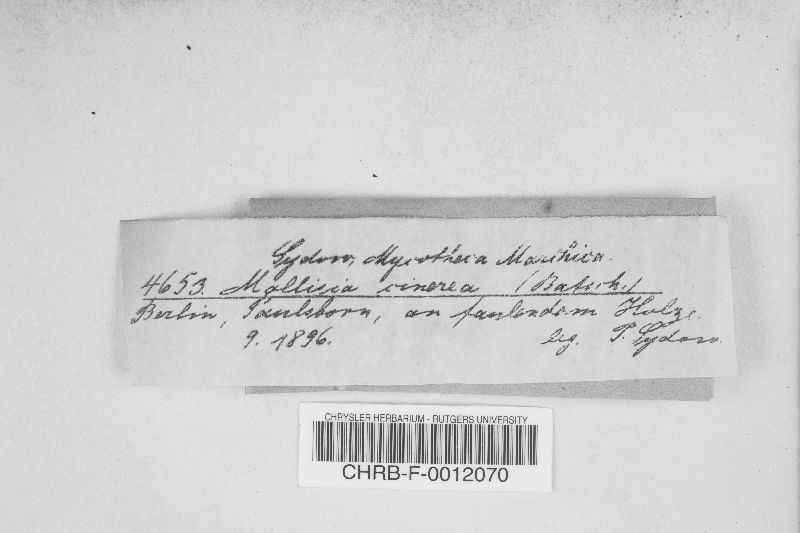 Sydow, Mycotheca Marchica.
4653. Mollisia cinerea (Batsch.)
Berlin, Paulsborn, an faulendem Holze.
9. 1896. leg. P. Sydow.
CHRYSLER HERBARIUM - RUTGERS UNIVERSITY
CHRB-F-0012070